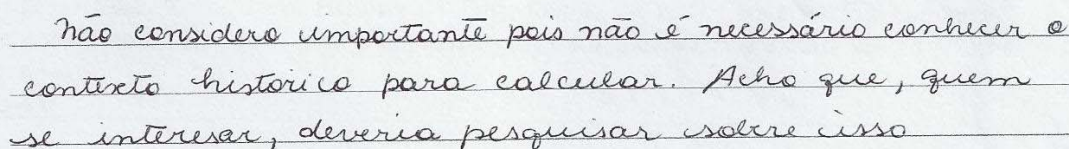 não considero importante pois não é necessário conhecer o
contexto historico para calcular. Acho que, quem
se interesar, deveria pesquisar sobre isso